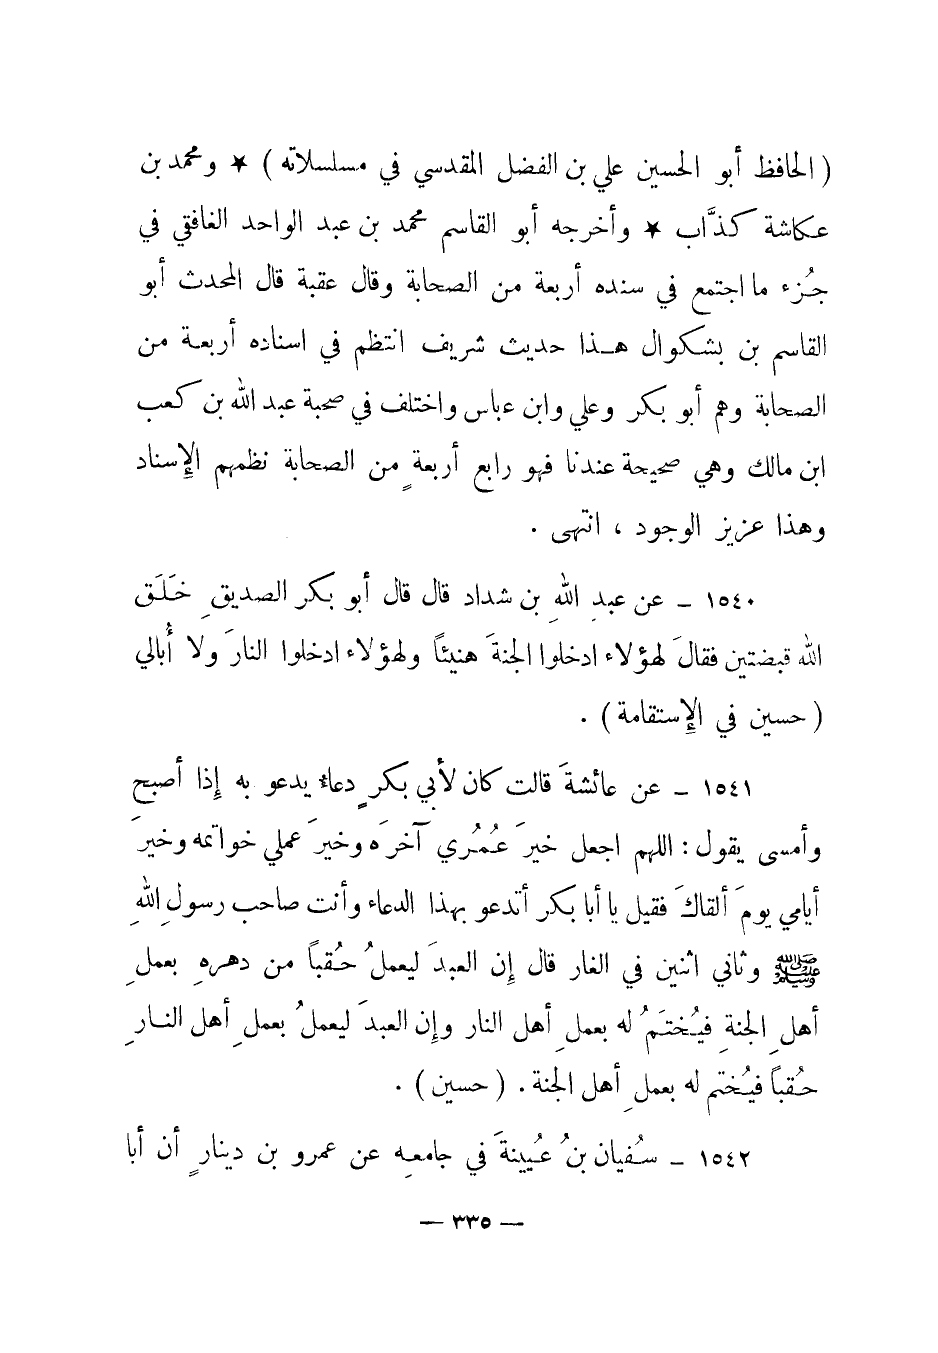 ( الحافظ أبو الحسين علي بن الفضل المقدسي في مسلسلاته ) ★ ومحمد بن
عكاشة كذَّاب ★ وأخرجه أبو القاسم محمد بن عبد الواحد الغافقي في
جُزء ما اجتمع في سنده أربعة من الصحابة وقال عقبة قال المحدث أبو
القاسم بن بشكوال هـذا حديث شريف انتظم في اسناده أربعة من
الصحابة وهم أبو بكر وعلي وابن عباس واختلف في صحبة عبد الله بن كعب
ابن مالك وهي صحيحة عندنا فهو رابع أربعةٍ من الصحابة نظمهم الإِسناد
وهذا عزيز الوجود ، انتهى .
١٥٤٠ ـ عن عبدِ اللهِ بن شداد قال قال أبو بكر الصديقِ خَلَقَ
الله قبضتين فقالَ لهؤلاء ادخلوا الجنةَ هنيئاً ولهؤلاء ادخلوا النارَ ولا أُبالي
( حسين في الإِستقامة ) .
١٥٤١ ـ عن عائشةَ قالت كان لأبي بكرٍ دعاءٌ يدعو به إِذا أصبح
وأمسى يقول : اللهم اجعل خيرَ عُمُري آخرَه وخيرَ عملي خواتمه وخيرَ
أيامي يومَ ألقاكَ فقيل يا أبا بكر أتدعو بهذا الدعاء وأنت صاحب رسولِ اللهِ
ﷺ وثاني اثنين في الغار قال إِن العبدَ ليعملُ حُقباً من دهرهِ بعملِ
أهلِ الجنةِ فيُختَمُ له بعملِ أهل النار وإِن العبدَ ليعملُ بعملِ أهل النـارِ
حُقباً فيُختم له بعملِ أهل الجنة . ( حسين ) .
١٥٤٢ ـ سُفيان بنُ عُيينةَ في جامعِه عن عمرو بن دينارٍ أن أبا
— ٣٣٥ —